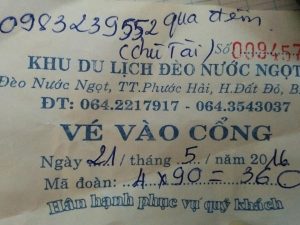 0983239552 qua đêm
(chú Tài)
Số 009457
KHU DU LỊCH ĐÈO NƯỚC NGỌT
Đèo Nước Ngọt, TT.Phước Hải, H.Đất Đỏ, B
ĐT: 064.2217917 - 064.3543037
VÉ VÀO CỔNG
Ngày 21 / tháng 5 / năm 2016
Mã đoàn: 4 x 90 = 360
Hân hạnh phục vụ quý khách